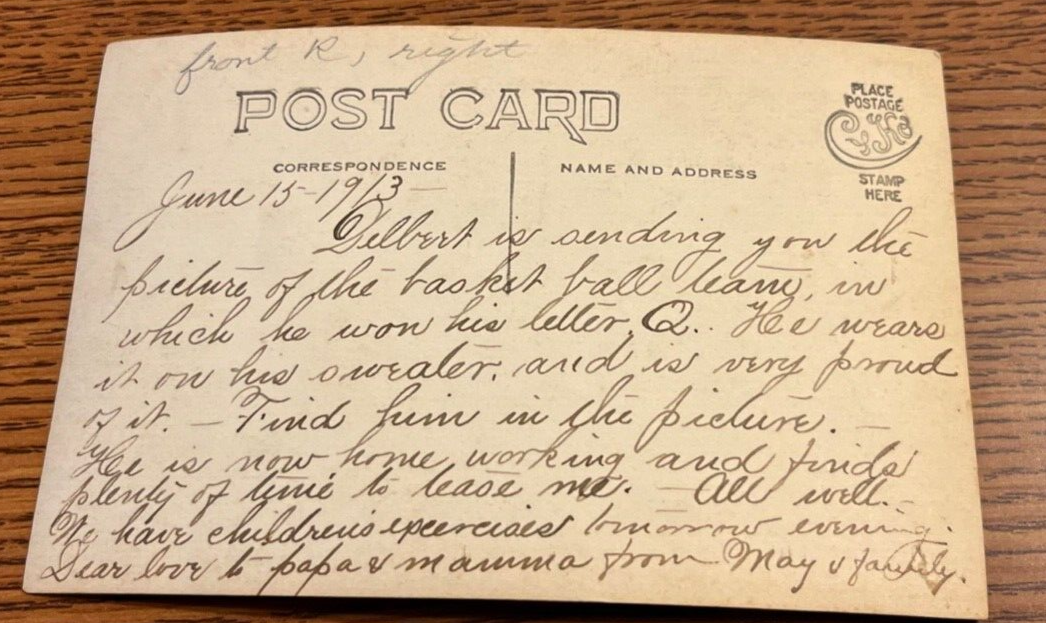 front R, right
POST CARD
PLACE
POSTAGE
STAMP
HERE
CORRESPONDENCE
NAME AND ADDRESS
June 15-1913-
Delbert is sending you the
picture of the basket ball team, in
which he won his letter, Q.. He wears
it on his sweater, and is very proud
of it. - Find him in the picture. -
He is now home working and finds
plenty of time to tease me. - All well. -
We have children's exercises tomorrow evening.
Dear love to papa & mamma from May & family.